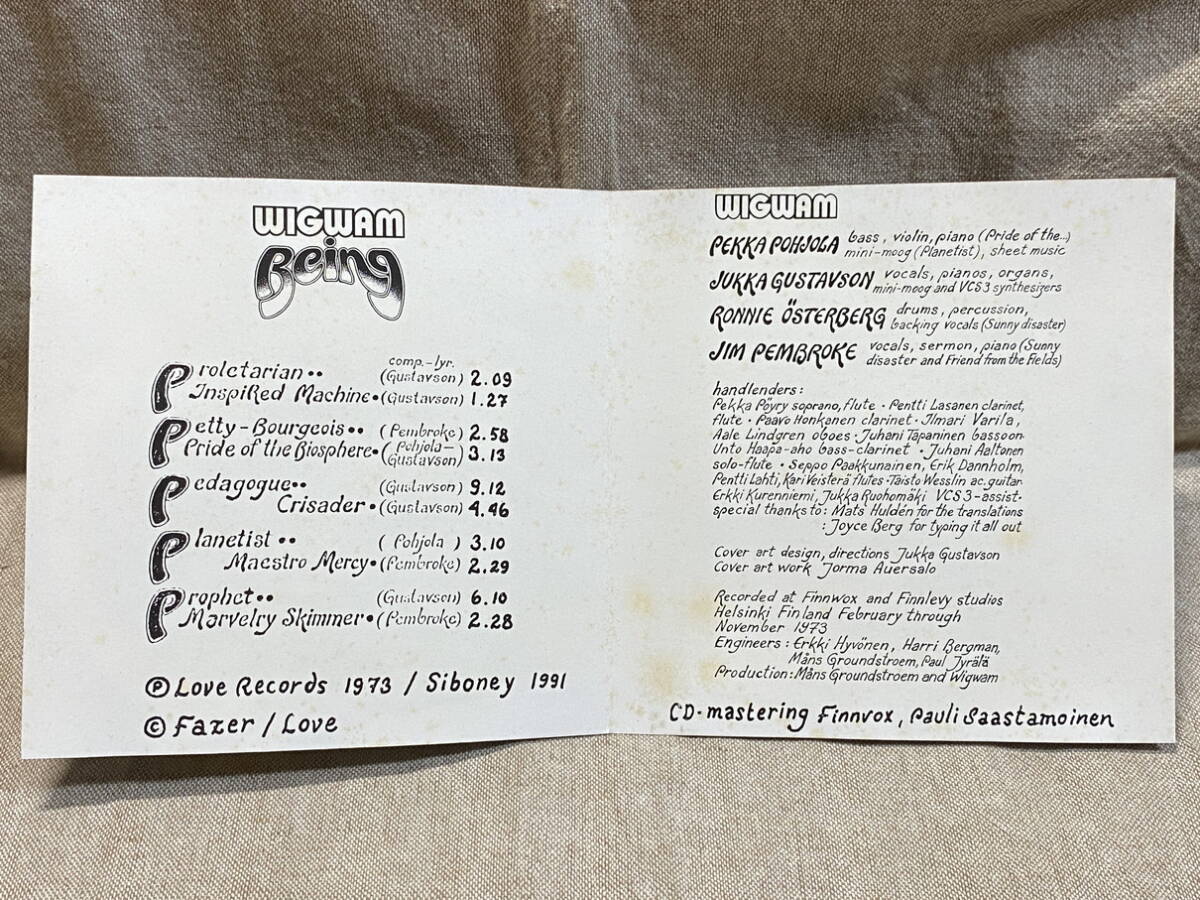 WIGWAM
Being
comp.-lyr.
Proletarian •• (Gustavson) 2.09
InspiRed Machine • (Gustavson) 1.27
Petty-Bourgeois •• (Pembroke) 2.58
Pride of the Biosphere • (Pohjola-Gustavson) 3.13
Pedagogue •• (Gustavson) 9.12
Crisader • (Gustavson) 4.46
Planetist •• ( Pohjola ) 3.10
Maestro Mercy • (Pembroke) 2.29
Prophet •• (Gustavson) 6.10
Marvelry Skimmer • (Pembroke) 2.28
℗ Love Records 1973 / Siboney 1991
© Fazer / Love
WIGWAM
PEKKA POHJOLA bass, violin, piano (Pride of the...)
mini-moog (Planetist), sheet music
JUKKA GUSTAVSON vocals, pianos, organs,
mini-moog and VCS3 synthesizers
RONNIE ÖSTERBERG drums, percussion,
backing vocals (Sunny disaster)
JIM PEMBROKE vocals, sermon, piano (Sunny
disaster and Friend from the fields)
handlenders:
Pekka Pöyry soprano, flute • Pentti Lasanen clarinet,
flute • Paavo Honkanen clarinet • Ilmari Varila,
Aale Lindgren oboes • Juhani Tapaninen bassoon
Unto Haapa-aho bass-clarinet • Juhani Aaltonen
solo-flute • Seppo Paakkunainen, Erik Dannholm,
Pentti Lahti, Kari Veisterä flutes • Taisto Wesslin ac. guitar
Erkki Kurenniemi, Jukka Ruohomäki VCS3-assist.
special thanks to: Mats Huldén for the translations
: Joyce Berg for typing it all out
Cover art design, directions Jukka Gustavson
Cover art work Jorma Auersalo
Recorded at Finnwox and Finnlevy studios
Helsinki Finland February through
November 1973
Engineers: Erkki Hyvönen, Harri Bergman,
Måns Groundstroem, Paul Jyrälä
Production: Måns Groundstroem and Wigwam
CD-mastering Finnvox, Pauli Saastamoinen